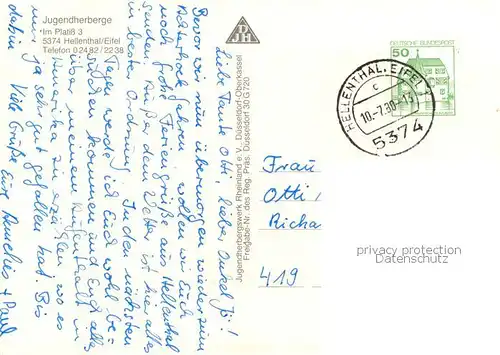 Jugendherberge
Im Platiß 3
5374 Hellenthal/Eifel
Telefon 0 24 82 / 22 38
DJH
Liebe Tante Otti, lieber Onkel Jo!
Bevor wir nun übermorgen wieder zum
fahren, wollen wir Euch
noch frohe Feriengrüße aus Hellenthal
senden. Außer dem Wetter ist hier alles
in bester Ordnung. In den nächsten
Tagen werde ich Euch wohl be-
suchen kommen und Euch alles
über meinen Aufenthalt in
zu erzählen, wo es
mir ja sehr gut gefallen hat. Bis
dahin
Viele Grüße Eure Annelies + Paul
Jugendherbergswerk Rheinland e.V., Düsseldorf-Oberkassel
Freigabe-Nr. des Reg. Präs. Düsseldorf 30 G 720
DEUTSCHE BUNDESPOST
50
HELLENTHAL, EIFEL 1
c
10.-7.80-13
5374
Frau
Otti
Richa
419
privacy protection
Datenschutz